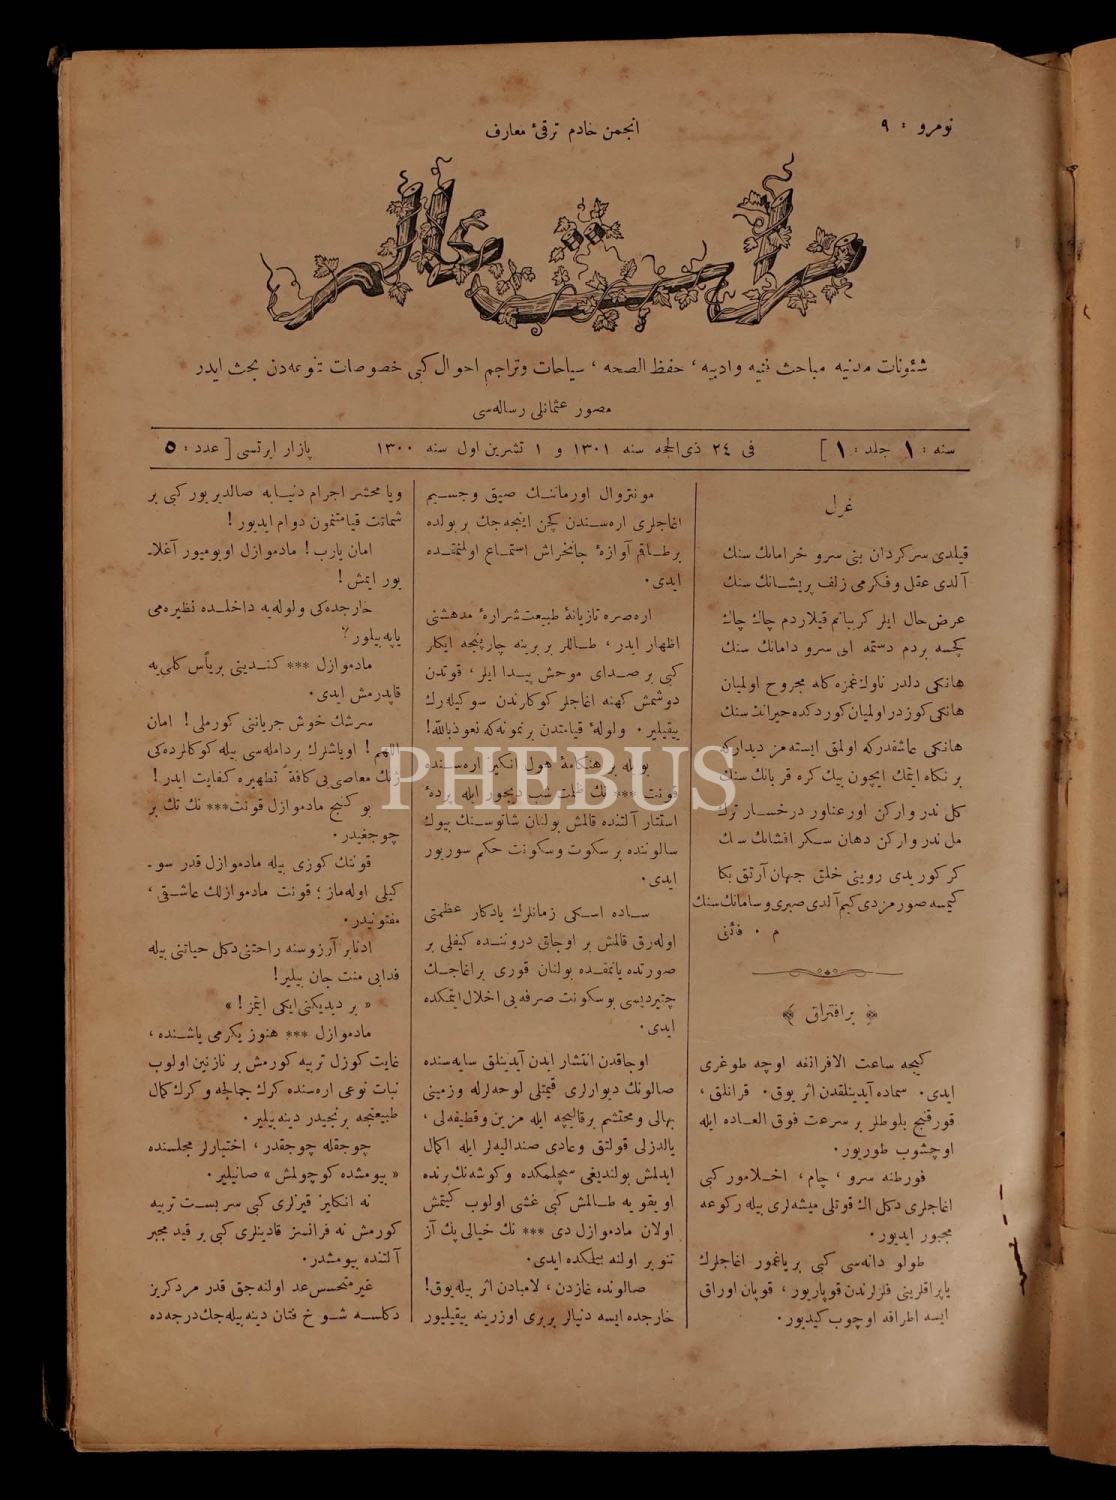 نومرو : ٩
انجمن خادم ترقئ معارف
شئونات مدنیه مباحث فنیه وادبیه ، حفظ الصحه ، سیاحات وتراجم احوال کبی خصوصات متنوعه‌دن بحث ایدر
مصور عثمانلی رساله‌سی
سنه : ١ جلد : ١ ]
فی ٢٤ ذی الحجه سنه ١٣٠١ و ١ تشرین اول سنه ١٣٠٠
پازار ایرتسی [ عدد : ٥
غزل
قیلدی سرکردان بنی سرو خرامانك سنك
آلدی عقل وفکرمی زلف پریشانك سنك
عرض حال ایلر کریبانم قیلاردم چاك چاك
کچسه بردم دستمه ای سرو دامانك سنك
هانکی دلدر ناوك غمزه کله مجروح اولمیان
هانکی کوزدر اولمیان کوردکده حیرانك سنك
هانکی عاشقدرکه اولمق ایسته‌مز دیدارکه
بر نکاه ایتمك ایچون بیك کره قربانك سنك
کل ندر وارکن اورعناور درخسار ترك
مل ندر وارکن دهان سکر افشانك سنك
کر کوریدی روینی خلق جهان آرتق بکا
کیمسه صورمزدی کیم آلدی صبری وسامانك سنك
م . فائی
﴿ بر افتراق ﴾
کیجه ساعت الافرانغه اوچه طوغری
ایدی . سماده آیدینلقدن اثر یوق . قرانلق ،
قورقنج بلوطلر بر سرعت فوق العاده ایله
اوچشوب طوریور .
فورطنه سرو ، چام ، اخلامور کبی
اغاجلری دکل اك قوتلی میشه‌لری بیله رکوعه
مجبور ایدیور .
طولو دانه‌سی کبی بر یاغمور اغاجلرك
یاپراقلرینی فلزلرندن قوپاریور ، قوپان اوراق
ایسه اطرافه اوچوب کیدیور .
مونتروال اورماننك صیق وجسیم
اغاجلری اره‌سندن کچن اینجه‌جك بر یولده
برطاقم آوازۀ جانخراش استماع اولنمقده
ایدی .
اره‌صره تازیانۀ طبیعت شرارۀ مدهشنی
اظهار ایدر ، طاللر بر برینه چارپنجه ایکلر
کبی بر صدای موحش پیدا ایلر ، قوتدن
دوشمش کهنه اغاجلر کوکلرندن سوکیله‌رك
ییقیلیر . ولولۀ قیامتدن بر نمونه‌که نعوذ بالله!
بویله بر هنکامۀ هول انکیز اره‌سنده
قونت *** نك ظلمت شب دیجور ایله پردۀ
استتار آلتنده قالمش بولنان شاتوسنك بیوك
سالوننده بر سکوت وسکونت حکم سوریور
ایدی .
ساده اسکی زمانلرك یادکار عظمتی
اوله‌رق قالمش بر اوجاق دروننده کیفلی بر
صورتده یانمقده بولنان قوری بر اغاجك
چتیردیسی بو سکونت صرفه‌یی اخلال ایتمکده
ایدی .
اوجاقدن انتشار ایدن آیدینلق سایه‌سنده
صالونك دیوارلری قیمتلی لوحه‌لرله وزمینی
بهالی ومحتشم بر قالیچه ایله مزین وقطیفه‌لی ،
یالدزلی قولتق وعادی صندالیه‌لر ایله اکمال
ایدلمش بولندیغی سچلمکده وکوشه‌نك برنده
اویقویه طالمش کبی غشی اولوب کیتمش
اولان مادموازل دی *** نك خیالی پك آز
تنویر اولنه بیلمکده ایدی .
صالونده غازدن ، لامبادن اثر بیله یوق!
خارجده ایسه دنیالر بربری اوزرینه ییقیلیور
ویا محشر اجرام دنیایه صالدیریور کبی بر
شماتت قیامتنمون دوام ایدیور !
امان یارب ! مادموازل اویومیور آغلا-
یور ایمش !
خارجده‌کی ولوله‌یه داخلده نظیره‌می
یاپه‌بیلور ؟
مادموازل *** کندینی بر یأس کلی‌یه
قاپدرمش ایدی .
سرشك خوش جریاننی کورملی ! امان
اللهم ! اویاشلرك بر دامله‌سی بیله کوکللرده‌کی
ژنك معاصی‌یی کافۀ تطهیره کفایت ایدر !
بو کنج مادموازل قونت *** نك تك بر
چوجغیدر .
قونتك کوزی بیله مادموازل قدر سو-
کیلی اوله‌ماز ؛ قونت مادموازلك عاشقی ،
مفتونیدر .
ادنا بر آرزوسنه راحتنی دکل حیاتنی بیله
فدایی منت جان بیلیر !
« بر دیدیکنی ایکی ایتمز ! »
مادموازل *** هنوز یکرمی یاشنده ،
غایت کوزل تربیه کورمش بر نازنین اولوب
نبات نوعی اره‌سنده کرك جمالجه وکرك کمال
طبیعتجه برنجیدر دینه بیلیر .
چوجقله چوجقدر ، اختیارلر مجلسنده
« بیومشده کوچولمش » صانیلیر .
نه انکلیز قیزلری کبی سربست تربیه
کورمش نه فرانسز قادینلری کبی بر قید مجبر
آلتنده بیومشدر .
غیر متحسس عد اولنه‌جق قدر مردکریز
دکلسه شوخ فتان دینه بیله‌جك درجه‌ده
PHEBUS